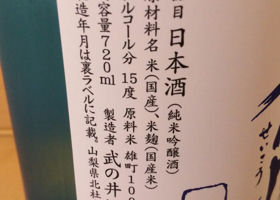 品目 日本酒 (純米吟醸酒)
原材料名 米(国産)、米麹(国産米)
アルコール分 15度 原料米 雄町100
内容量720ml 製造者 武の井
製造年月は裏ラベルに記載。山梨県北杜
せいこう